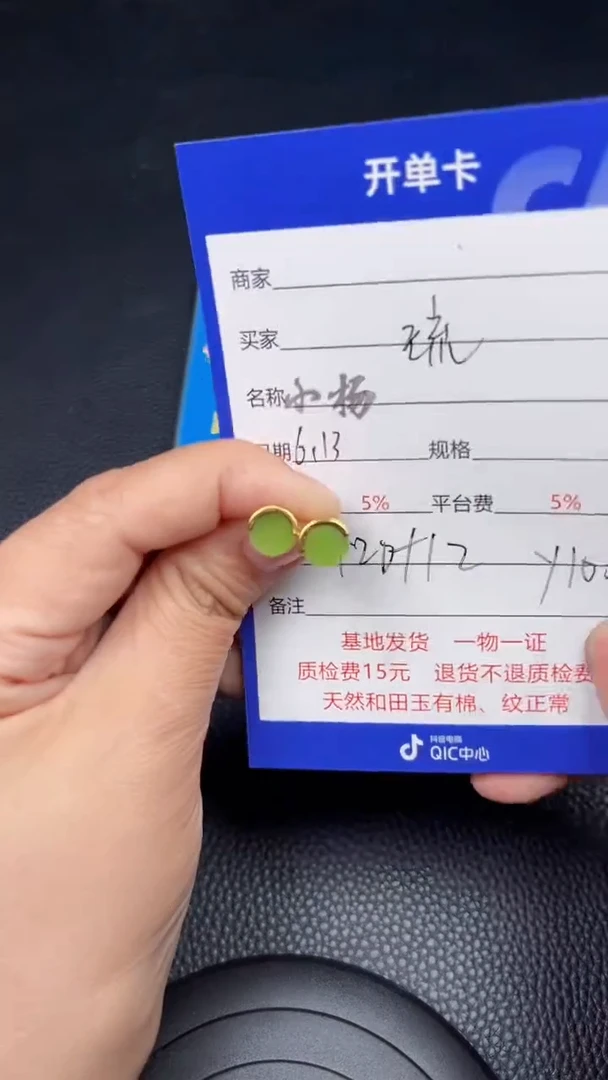 开单卡
商家
买家
名称 小杨
期 6.13 规格
5% 平台费 5%
备注
基地发货 一物一证
质检费15元 退货不退质检费
天然和田玉有棉、纹正常
抖音电商
QIC中心